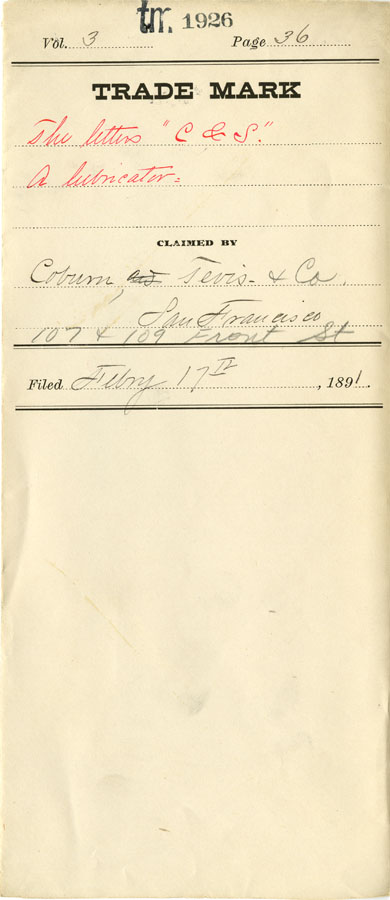 tm. 1926
Vol. 3 Page 36
TRADE MARK
The letters "C & S."
A lubricator=
CLAIMED BY
Coburn, and Tevis. & Co.
San Francisco
107 & 109 Front St
Filed Febry 17th, 1891.